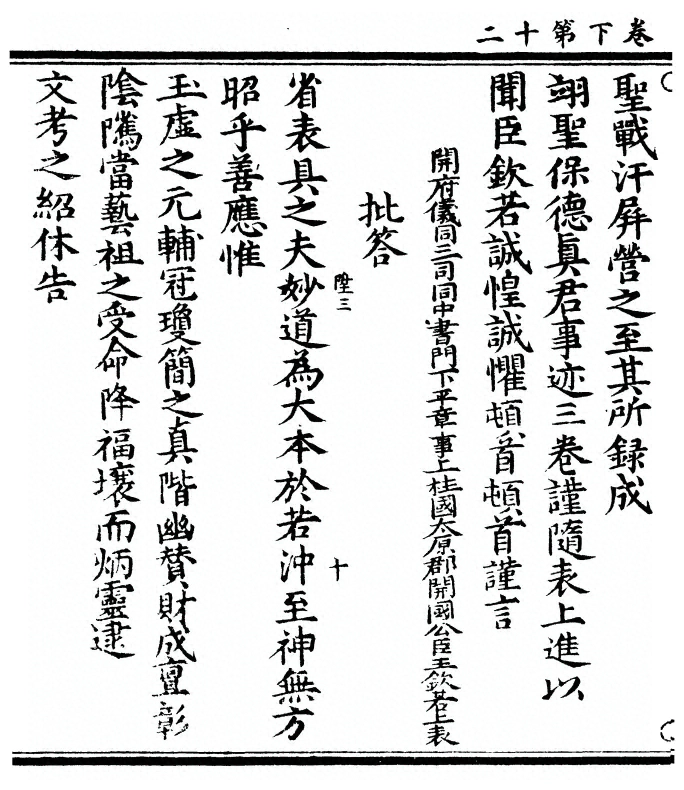 卷下第十二
聖戰汗屛營之至其所録成
翊聖保德真君事迹三卷謹隨表上進以
聞臣欽若誠惶誠懼頓首頓首謹言
開府儀同三司同中書門下平章事上柱國太原郡開國公臣王欽若上表
批答
陞三
十
省表具之夫妙道為大本於若沖至神無方
昭乎善應惟
玉虛之元輔冠瓊簡之真階幽贊財成亶彰
陰隲當藝祖之受命降福壤而炳靈逮
文考之紹休告